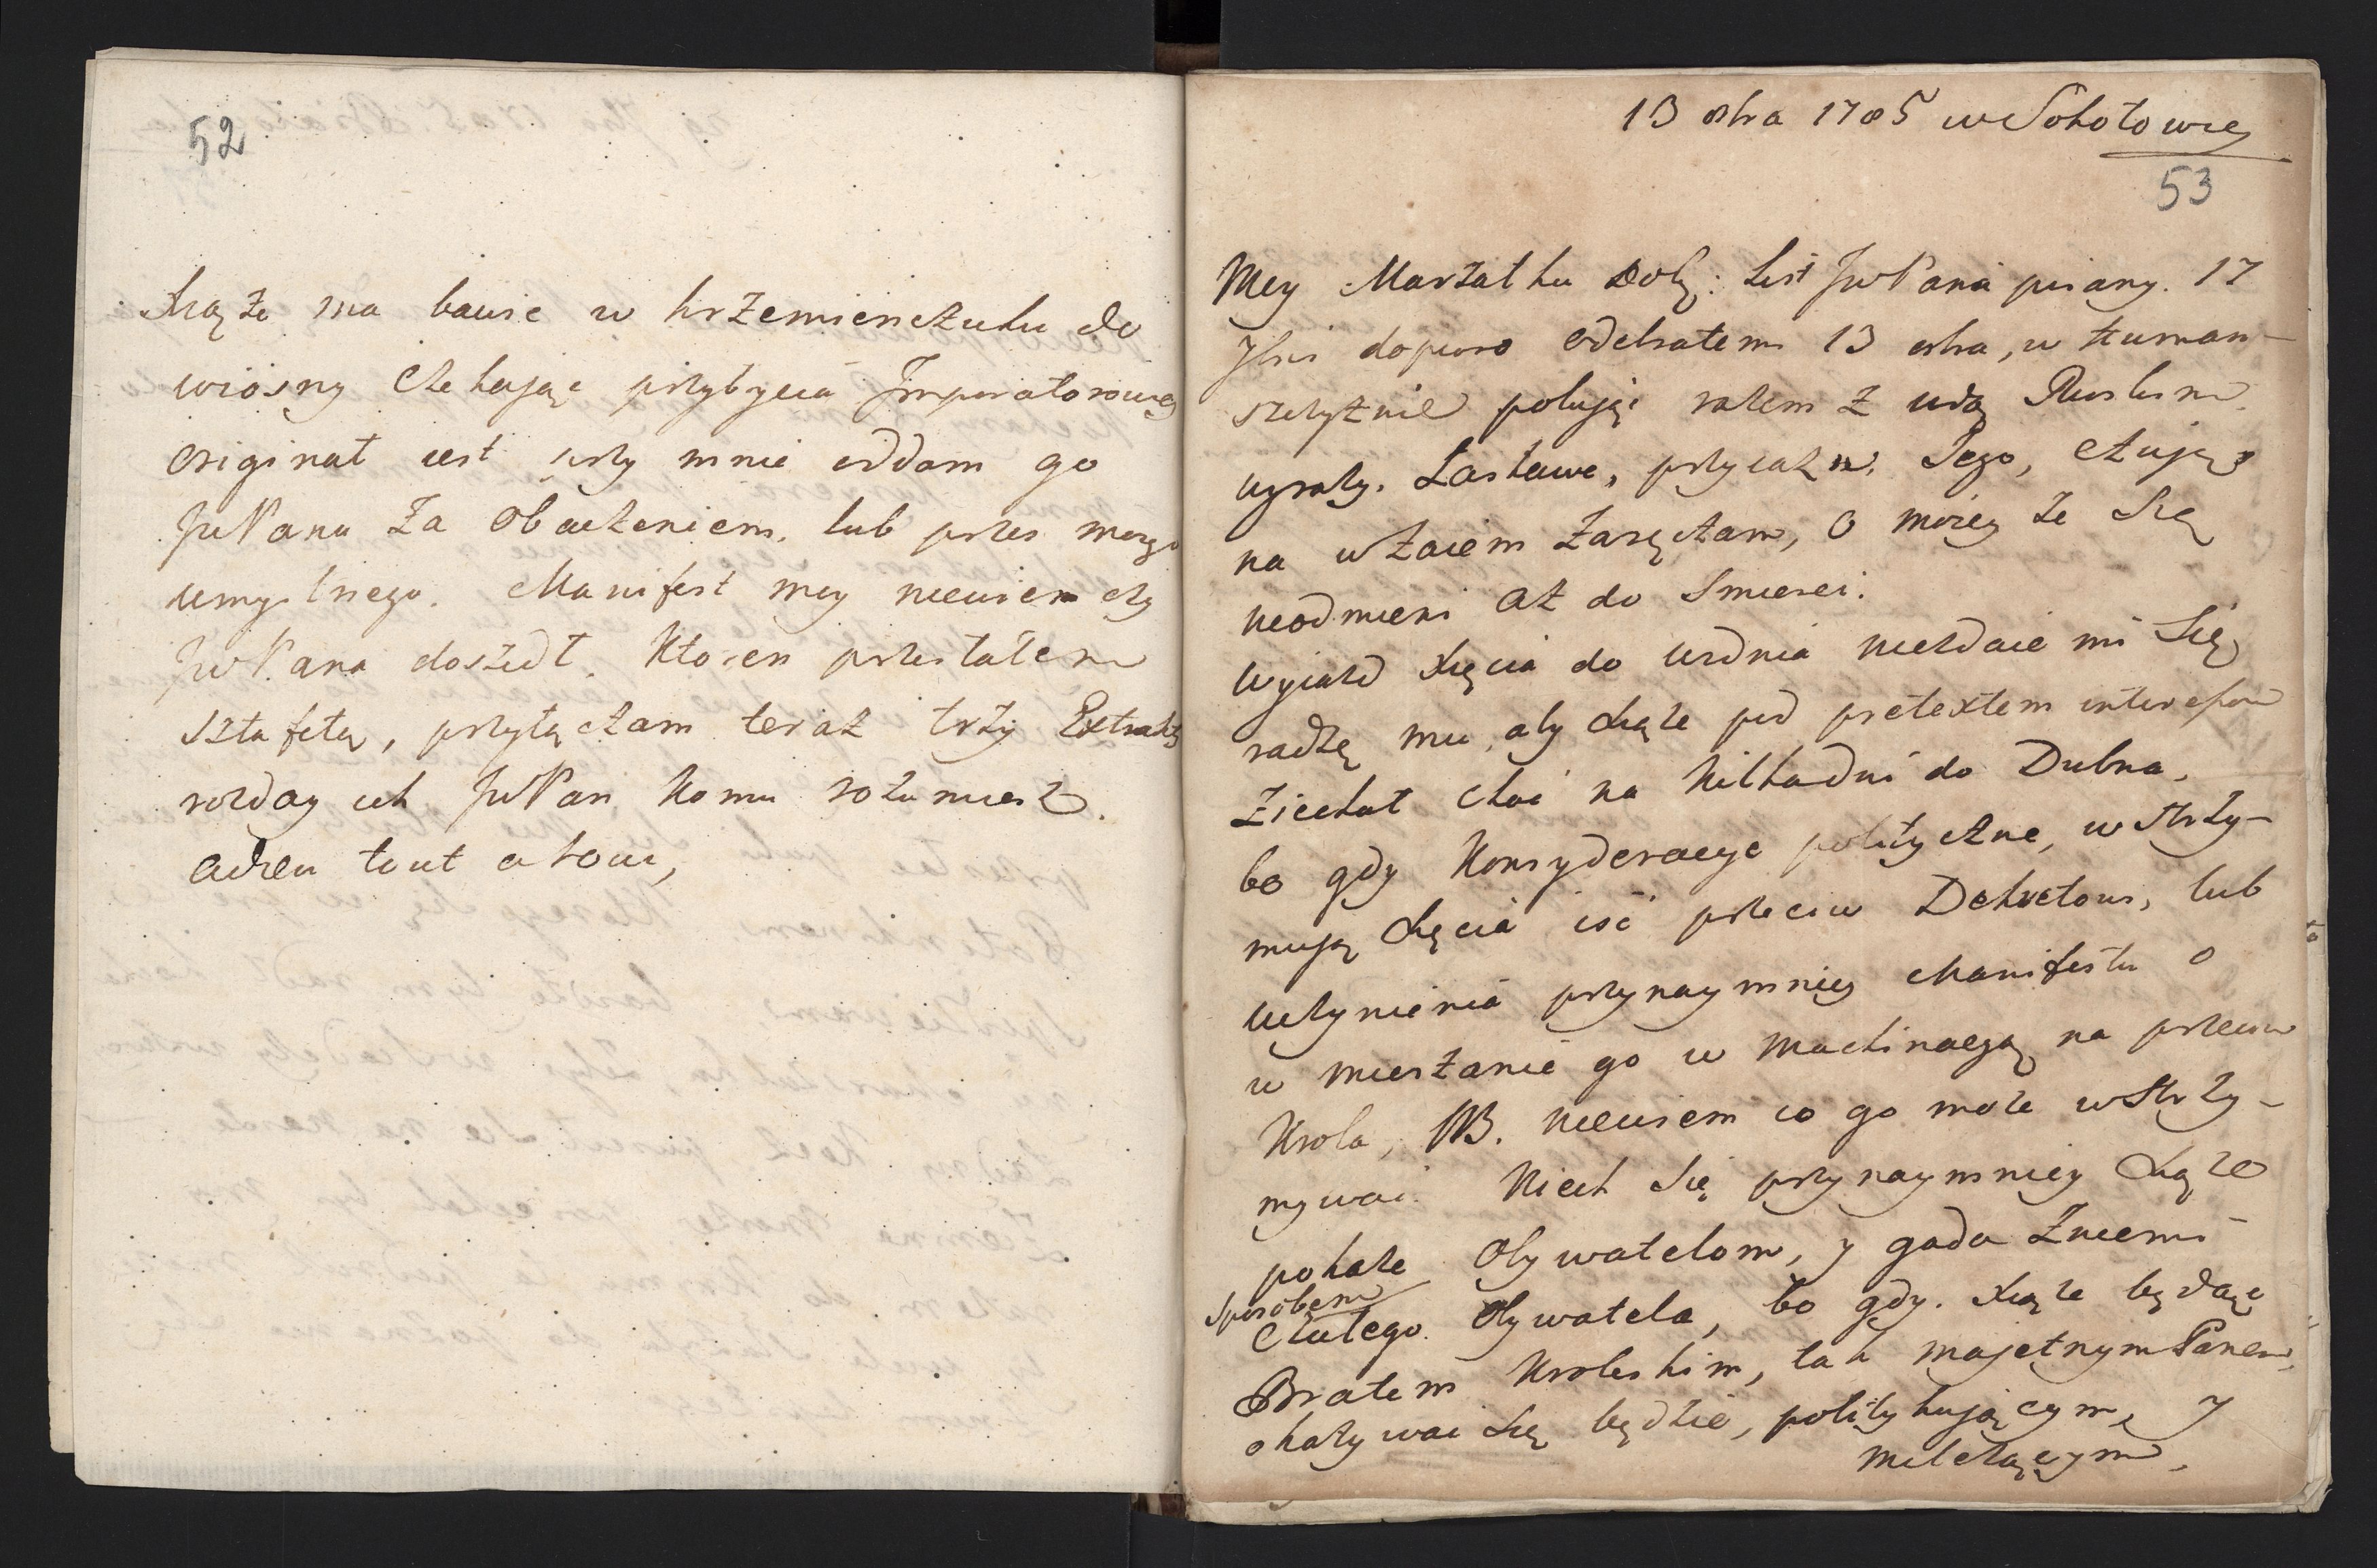 52
Xiąże ma bawic w krzemienczuku do
wiosny czekaiąc przybycia Imperatorowey
originał iest przy mnie oddam go
JWPanu za obaczeniem, lub przes mego
umyslnego. Manifest moy niewiem czy
JWPana doszedł, ktoren przesłałem
sztafetą, przyłączam teraz trzy Extrakty
rozday ich JWPan komu rozumiesz.
adieu tout a vous,
13 8bra 1785 w Sokołowie
53
Mcy Marszałku Dobr: List JWPana pisany 17
7bris dopiero odebrałem 13 8bra, w human-
szczyznie polując razem z
wyrazy. Łaskawe, przyiazn. Jego, czuję
na wzaiem zaręczam, o moiey że się
nieodmieni aż do smierci.
wyiazd Xięcia do wednia niezdaie mi się
radzę mu, aby Xiąże pod pretextem interessow
ziechał choć na kilkadni do Dubna,
bo gdy konsyderacye polityczne, wstrzy-
mują Xięcia isć przeciw Dekretowi, lub
uczynienia przynaymniey Manifestu o
w mieszanie go w machinacyą na przeciw
Krola, NB. niewiem co go może wstrzy-
mywać. Niech się przynaymniey Xiąże
pokaże Obywatelom, y gada zniemi
sposobem
czułego Obywatela, bo gdy. Xiąże będąc
Bratem Kroleskim, tak majętnym Panem,
okazywać się będzie, politykującym, y
milczącym,